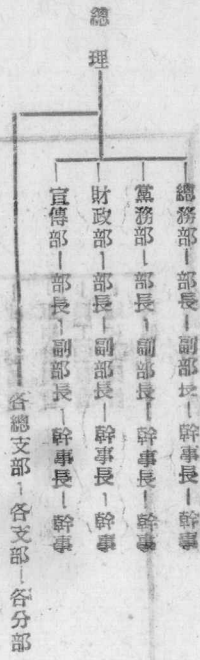 總理
總務部—部長—副部長—幹事長—幹事
黨務部—部長—副部長—幹事長—幹事
財政部—部長—副部長—幹事長—幹事
宣傳部—部長—副部長—幹事長—幹事
各總支部—各支部—各分部